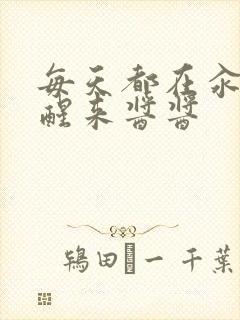 每天都在汆
醒来酱酱
鴇田一千葉